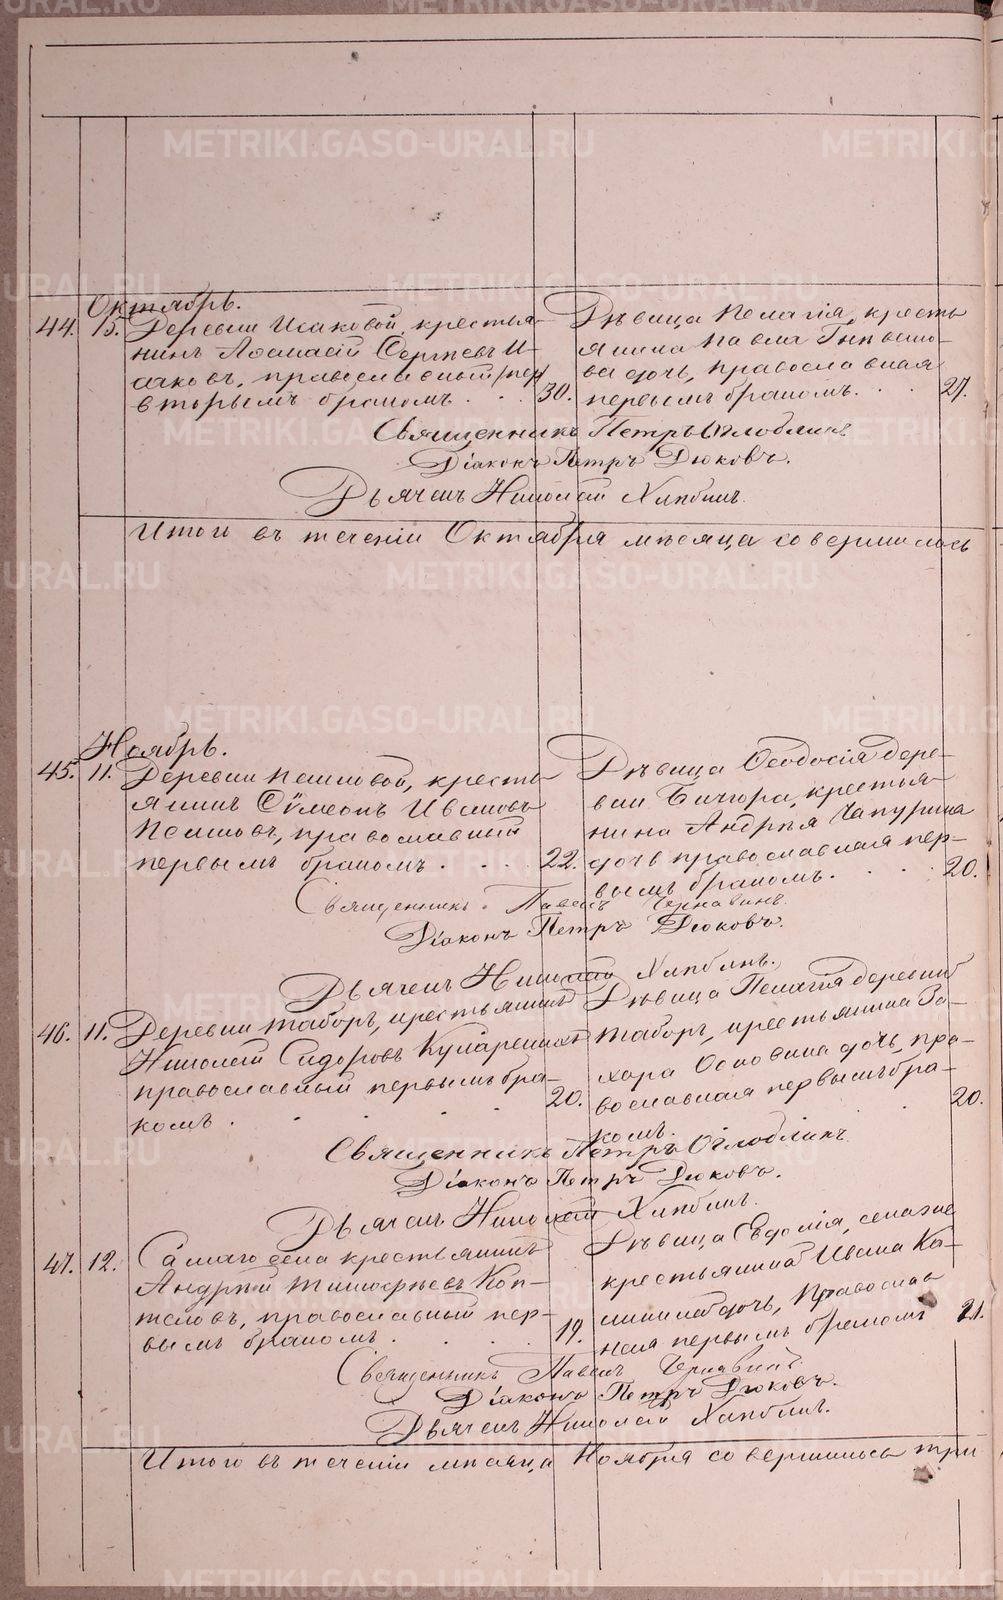 Октябрь.
44. 15. Деревни Исаковой, крестья-
нинъ Афанасій Сергѣевъ И-
саковъ, православный
вторымъ бракомъ. 30.
Дѣвица Пелагія, кресть
янина Павла
ва дочь, православная
первымъ бракомъ. 27.
Священникъ Петръ Оглоблинъ
Діаконъ Петръ Дюковъ.
Дьячекъ Николай Хлѣбинъ.
Итого въ теченіи Октября мѣсяца совершилось
Ноябрь.
45. 11. Деревни кресть-
янинъ Сѵмеонъ Ивановъ
православный
первымъ бракомъ. 22.
Дѣвица Ѳеодосія дере-
вни Бичура, крестья-
нина Андрея Чапурина
дочь православная пер-
вымъ бракомъ. 20.
Священникъ Павелъ Чернавинъ.
Діаконъ Петръ Дюковъ.
Дьячекъ Николай Хлѣбинъ.
46. 11. Деревни Таборъ, крестьянинъ
Николай Сидоровъ
православный первымъ бра-
комъ. 20.
Дѣвица Пелагія деревни
Таборъ, крестьянина За-
хара Осповина дочь, пра-
вославная первымъ бра-
комъ. 20.
Священникъ Петръ Оглоблинъ.
Діаконъ Петръ Дюковъ.
Дьячекъ Николай Хлѣбинъ.
47. 12. Самаго села крестьянинъ
Андрей Тимофѣевъ Коп-
теловъ, православный пер-
вымъ бракомъ. 19.
Дѣвица Евдокія, сегоже
крестьянина Ивана Ка-
дочь, Православ
ная первымъ бракомъ 21.
Священникъ Павелъ Чернавинъ.
Діаконъ Петръ Дюковъ.
Дьячекъ Николай Хлѣбинъ.
Итого въ теченіи мѣсяца Ноября совершилось три
METRIKI.GASO-URAL.RU